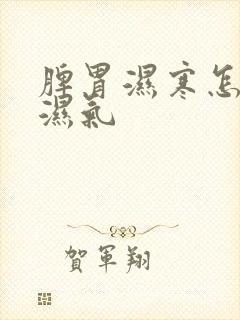 脾胃濕寒怎
濕氣
賀軍翔